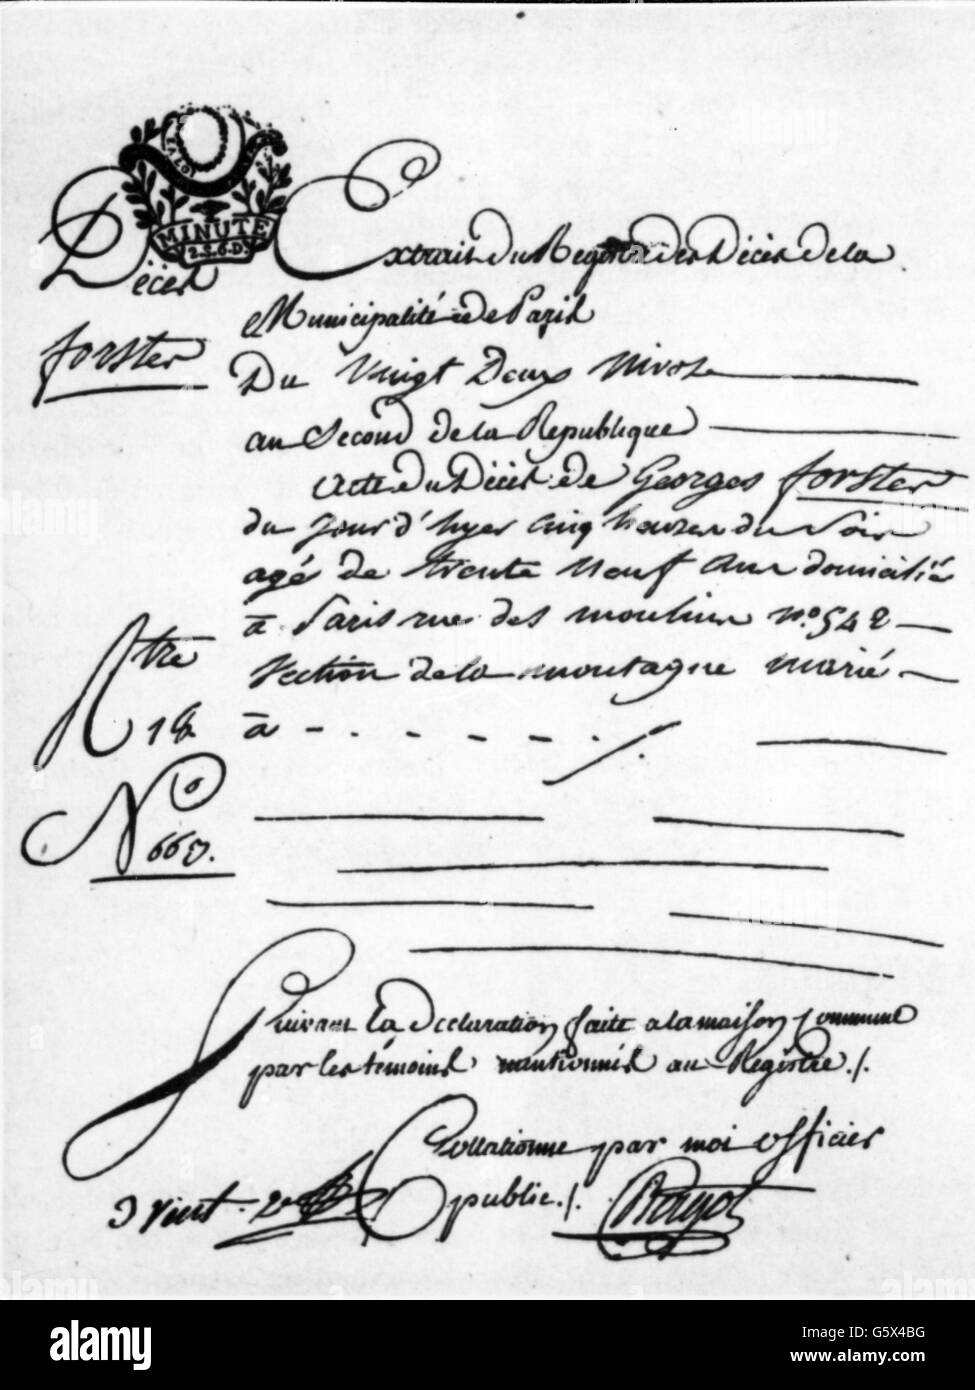 MINUTE
2.S.6.D.
Décès
forster
Extrait du Registre des Décès de la
Municipalité de Paris
Du Vingt Deux Nivose
au Second de la République
Acte du Décès de Georges forster
du jour d'hyer cinq heures du Soir
agé de trente neuf ans domicilié
à Paris rue des moulins no. 542
Section de la montagne marié
à
Rtre
18
No
665.
Suivant la déclaration faite a la maison commune
par les témoins mentionnés au Registre ./.
Collationné par moi officier
public ./.
alamy
Image ID: G5X4BG
www.alamy.com